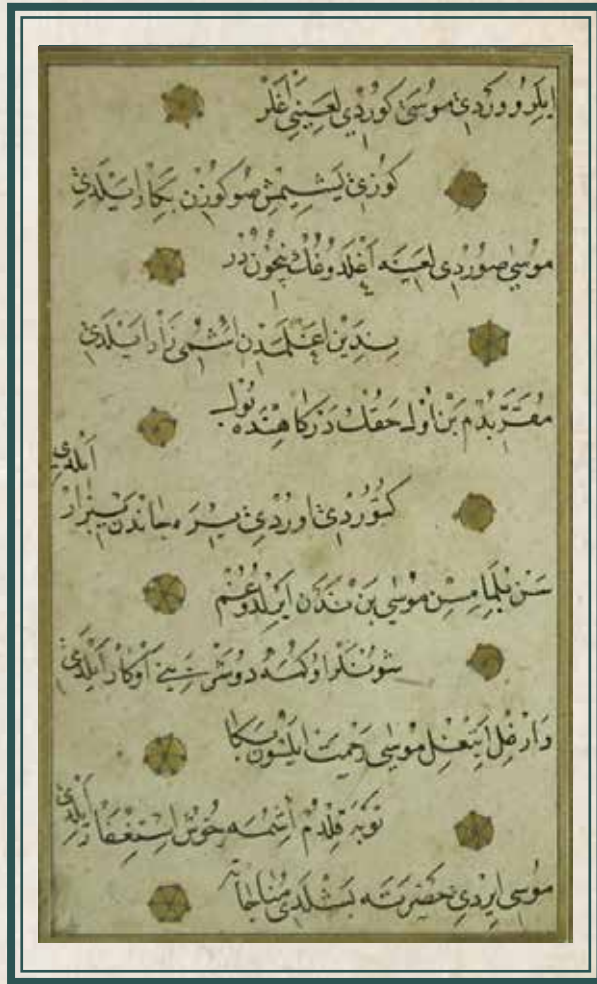 ايلرو وردي موسى كوردي لعيني اغلر
كوزي ياشيمش صو كوزن بكا رايلدي
موسى صوردي لعينه اغلدوغك نيچون در
بندين اغلمدن اشمى زار ايلدي
مقرب بدم بن اول حقك دركاهنده بول
كتوردي اوردي يره جاندن بيزار ايلدي
سن بلمامسن موسى بن ندن ايرلدوغم
شونلر اوكنه دوشر بني اوكار ايلدي
وارغل ايتغل موسى رحمت ايلسون بكا
توبه قلدم اشمه خوش استغفار ايلدي
موسى ايردي حضرته بشلدي مناجاته